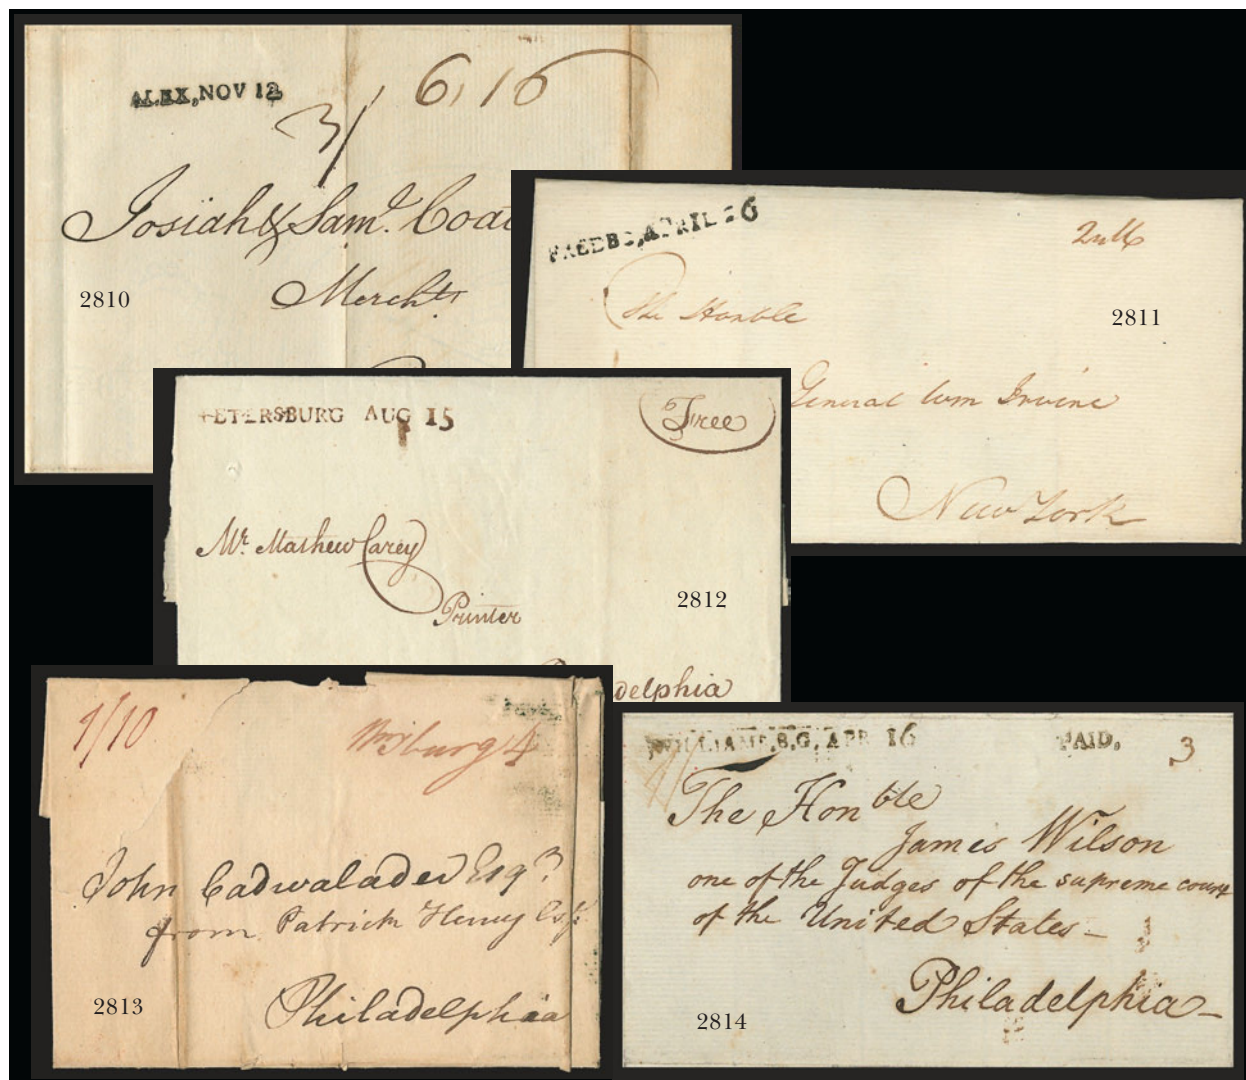 ALEX, NOV 12
6,16
3/
Josiah & Sam.l Coat
Merch.ts
2810
FREDBG, APRIL 26
The Honble
General Wm Irvine
New York
2811
PETERSBURG AUG 15
Free
Mr. Mathew Carey
Printer
delphia
2812
1/10
Wmsburg 4
John Cadwalader Esqr.
from Patrick Henry Esqr
Philadelphia
2813
WILLIAMSB.G, APR 16
PAID,
3
The Honble
James Wilson
one of the Judges of the supreme court
of the United States -
Philadelphia -
2814